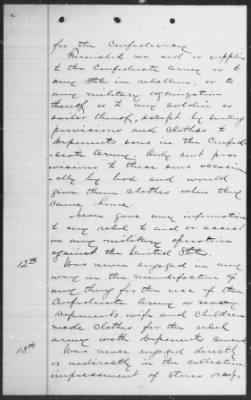 for the Confederacy
Furnished no aid or supplies
to the Confederate Army or to
any State in rebellion, or to
any military organization
thereof or to any soldier or
sailor thereof, except by sending
provisions and clothes to
deponents sons in the Confed-
erate Army. Only sent pro-
visions to these sons occasion-
ally by box and would
give them clothes when they
came home.
Never gave any information
to any rebel to aid or assist
in any military operation
against the United States.
12th Was never engaged in any
way in the manufacture of
any thing for the use of the
Confederate Army or navy
Deponents wife and children
made clothes for the rebel
army with deponents consent
13th Was never engaged directly
or indirectly in the collection
impressment of stores